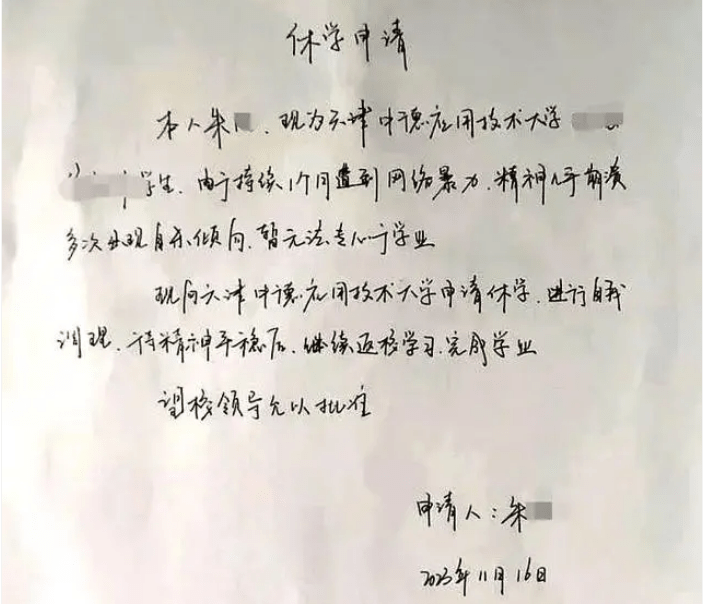 休学申请
本人朱 ，现为天津中德应用技术大学
学生，由于持续1个月遭到网络暴力，精神几乎崩溃
多次出现自杀倾向，暂无法专心于学业
现向天津中德应用技术大学申请休学，进行自我
调理，待精神平稳后，继续返校学习，完成学业
望校领导允以批准
申请人：朱
2023年11月16日